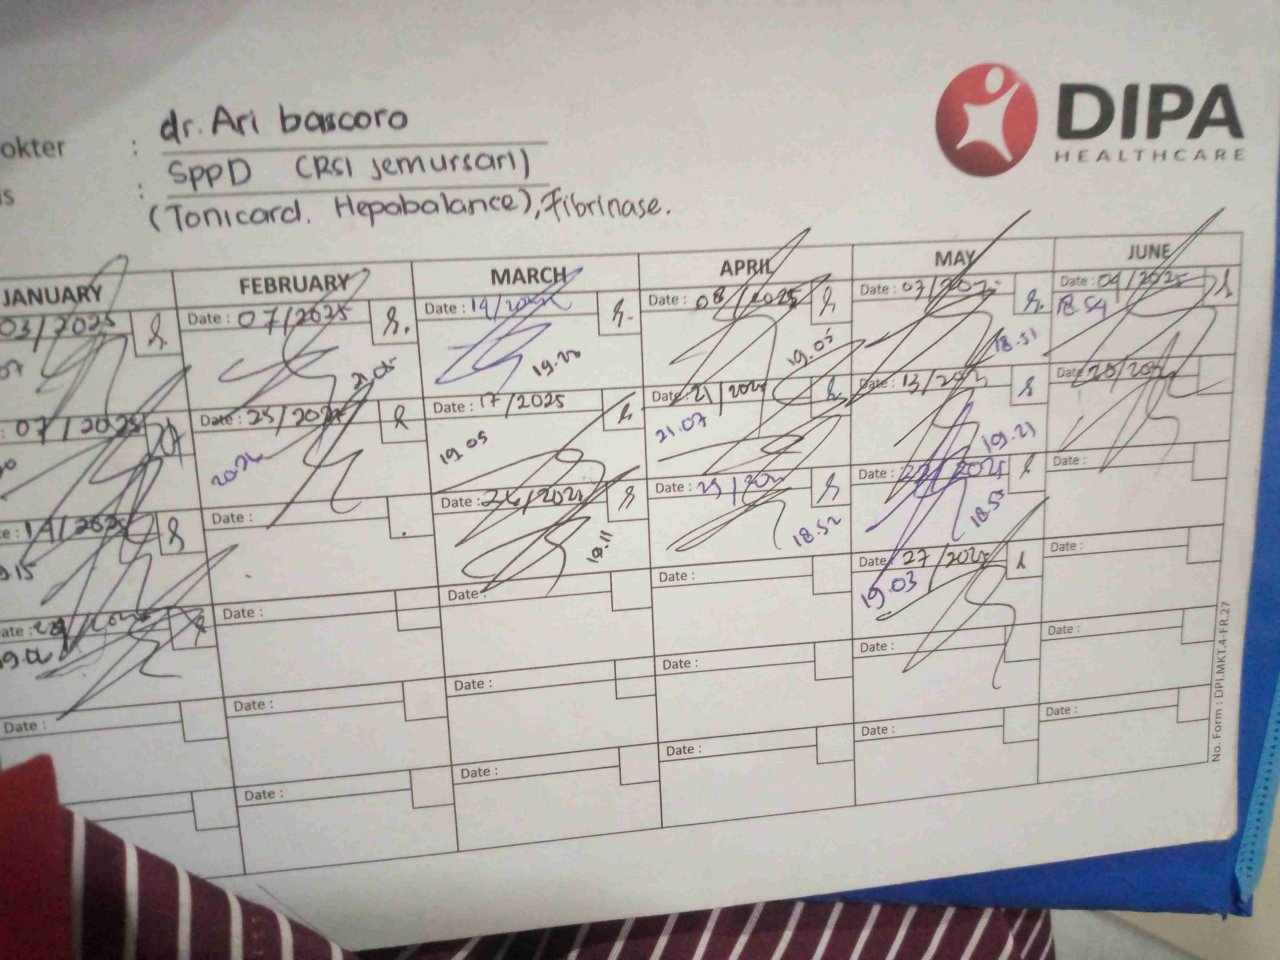 DIPA
HEALTHCARE
okter : dr. Ari bascoro
is : SPPD (RSI Jemursari)
(Tonicard. Hepabalance), Fibrinase.
JANUARY FEBRUARY MARCH APRIL MAY JUNE
03/2025 Date : 07/2025 Date : 14/2025 Date : 08/2025 Date : 07/2025 Date : 04/2025
21.05 19.20 19.03 18.51 18.54
: 07/2025 Date : 25/2025 Date : 17/2025 Date : 21/2025 Date : 13/2025 Date :
19.05 21.07 19.21
te : 14/2025 Date : Date : 26/2025 Date : Date : Date :
19.11 18.52 18.50
ate : Date : Date : Date : Date : 27/2025 Date :
19.03
Date : Date : Date : Date : Date : Date :
Date : Date : Date : Date : Date :
No. Form : DPI.MKT.4-FR.27